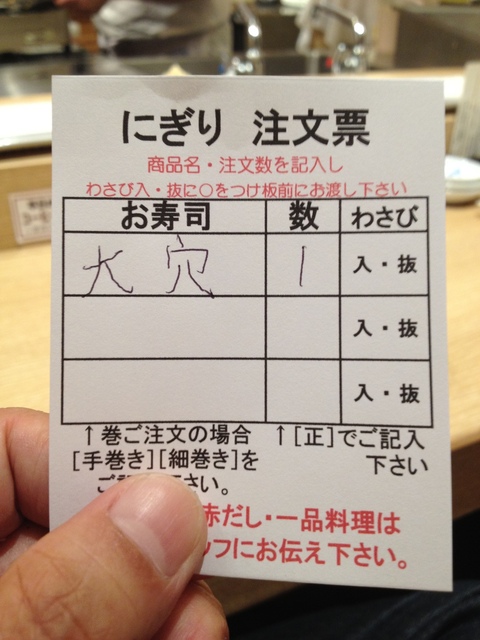 にぎり 注文票
商品名・注文数を記入し
わさび入・抜に○をつけ板前にお渡し下さい
お寿司 数 わさび
大穴 1 入・抜
入・抜
入・抜
↑巻ご注文の場合 ↑[正]でご記入
[手巻き][細巻き]を 下さい
ご記 さい。
赤だし・一品料理は
ッフにお伝え下さい。